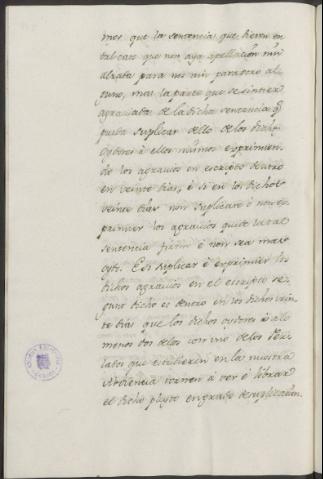 mas que la sentencia que dieren en
tal caso que non aya apellacion nin
alzada para nos nin para otro al
guno, mas la parte que se sintier
agraviada de la dicha sentencia q
pueda suplicar dello de los dichos
Oydores à ellos mismos esprimien
do los agravios en escripto dentro
en veinte dias, è si en los dichos
veinte dias non suplicare ò non es
primier los agravios quede la tal
sentencia firme è non sea mas
oydo. E si suplicar è esprimier los
dichos agravios en el escripto se
gund dicho es dentro en los dichos vein
te dias que los dichos oydores ò à lo
menos dos de los con uno de los Per
lados que estubieren en la nuestra
Audiencia tornen à ver è librar
el dicho pleyto en grado de suplicacion.